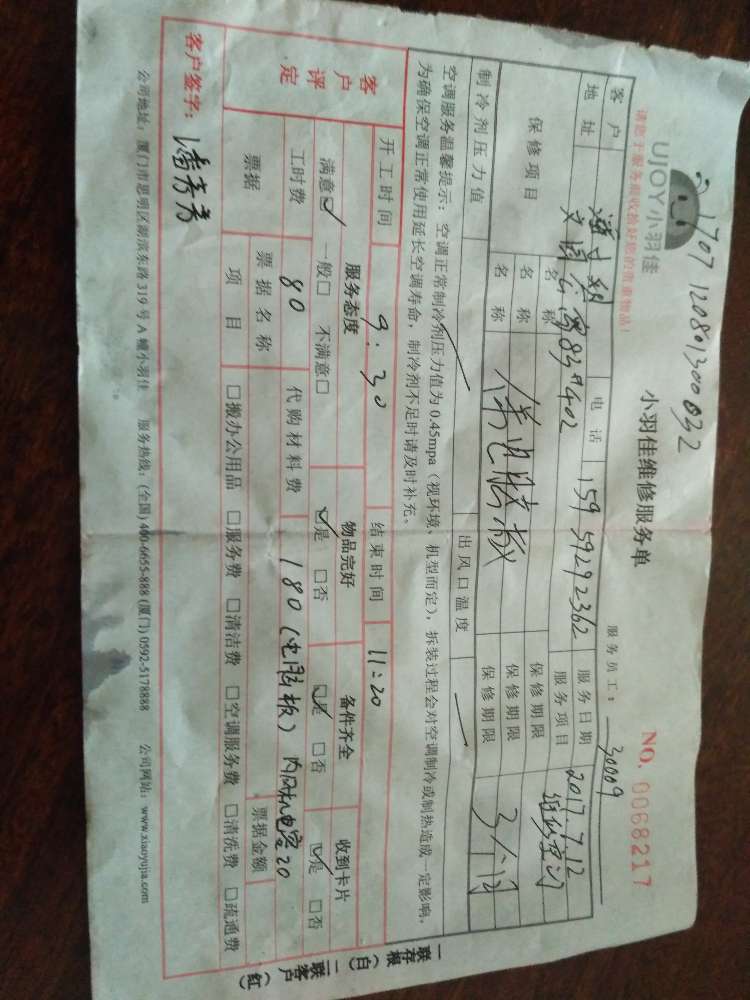 1707120801300032
UJOY小羽佳
请您于服务前收拾好您的贵重物品！
小羽佳维修服务单
NO. 0068217
服务员工： 30009
客户 电话 159 59292362 服务日期 2017.7.12
地址 服务项目
保修项目 名称 保修期限
名称 保修期限
名称 修电脑板 保修期限 3个月
制冷剂压力值 出风口温度
空调服务温馨提示：空调正常制冷剂压力值为0.45mpa（视环境、机型而定），拆装过程会对空调制冷或制热造成一定影响，
为确保空调正常使用延长空调寿命，制冷剂不足时请及时补充。
开工时间 9:30 结束时间 11:20
客户评定 服务态度 物品完好 备件齐全 收到卡片
满意☑ 一般□ 不满意□ ☑是 □否 ☑是 □否 ☑是 □否
工时费 80 代购材料费 180（电脑板）内风机电容20
票据 票据名称 票据金额
项目 □搬办公用品 □服务费 □清洁费 □空调服务费 □清洗费 □疏通费
客户签字：
公司地址：厦门市思明区湖滨东路319号A幢小羽佳 服务热线：(全国) 400-6655-888 (厦门) 0592-5178888 公司网站：www.xiaoyujia.com
一联存根（白） 二联客户（红）